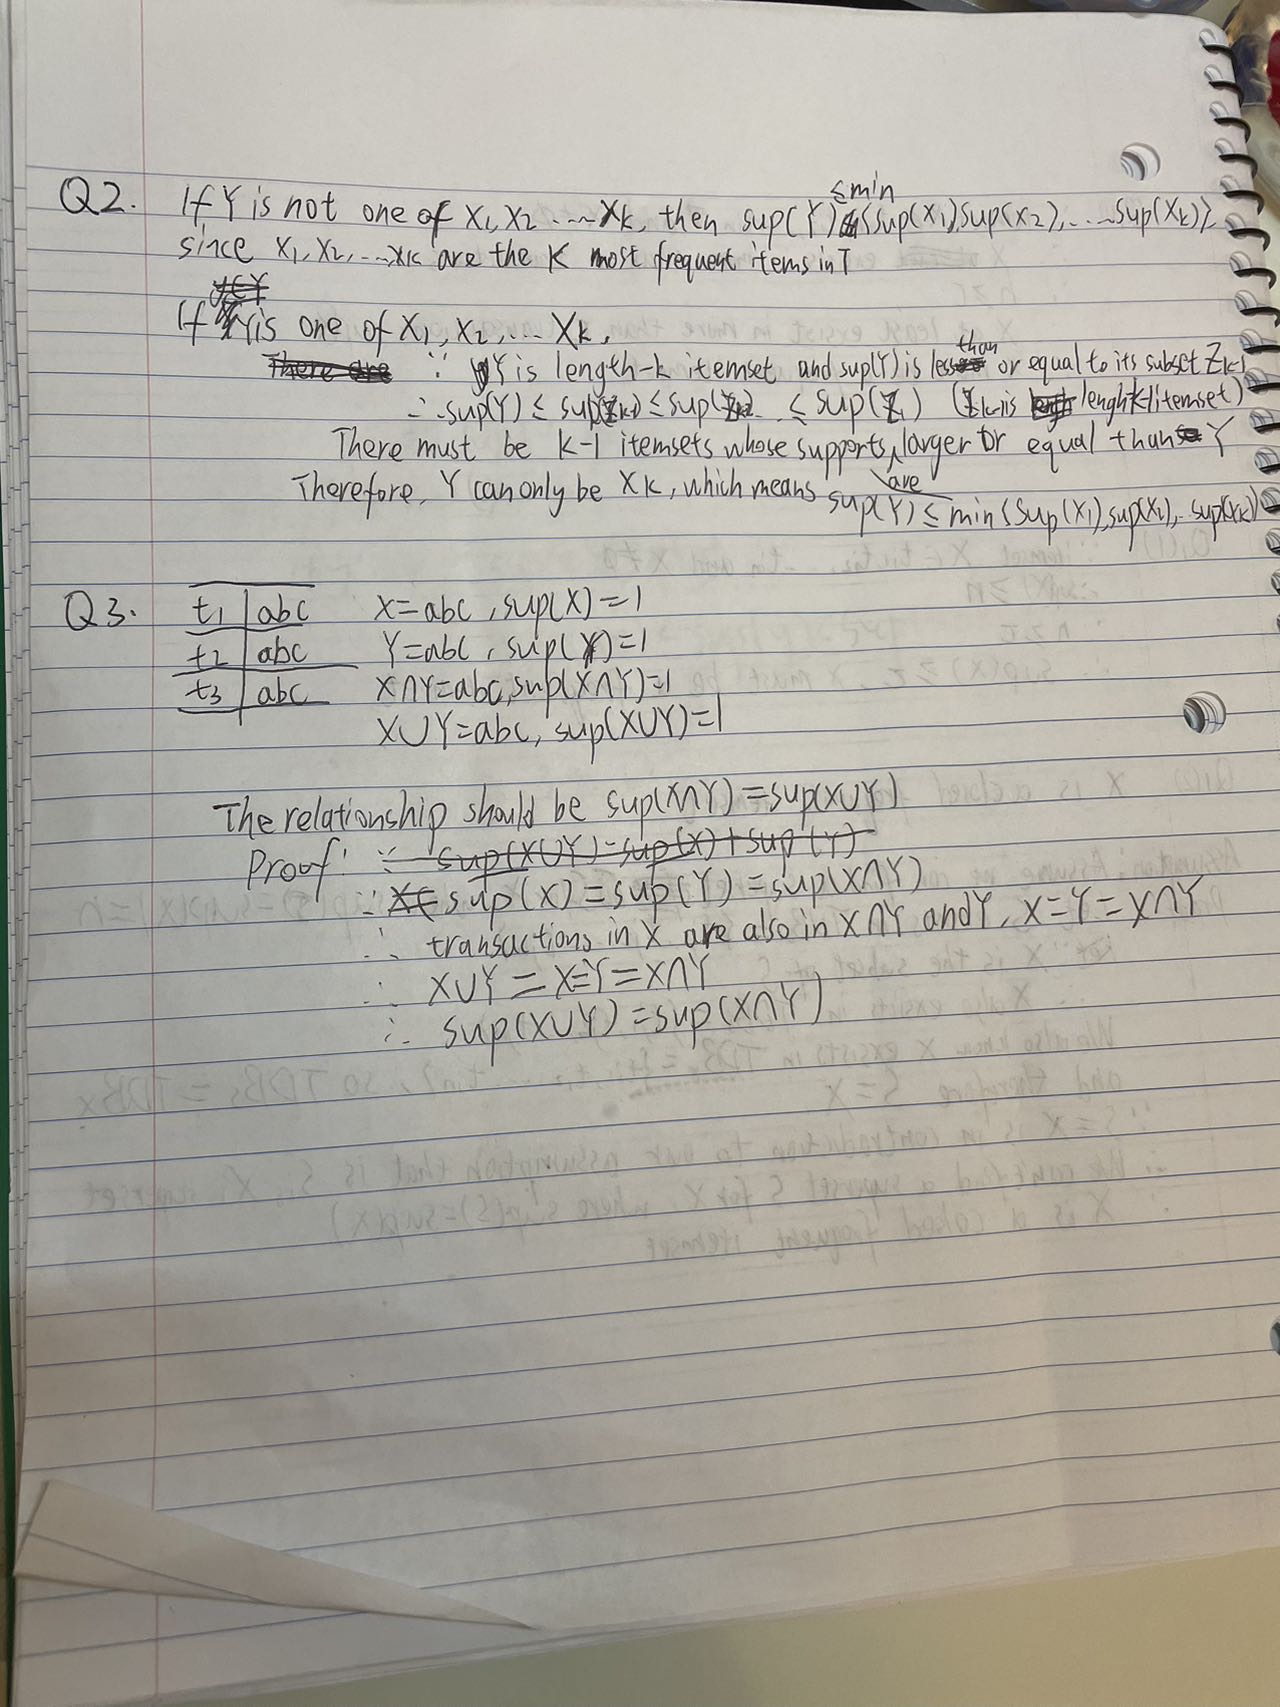 ≤min
Q2. If Y is not one of X1, X2 ..... Xk, then sup(Y) {sup(X1),sup(X2), .....sup(Xk)},
since X1, X2, .....Xk are the K most frequent items in T
If Y is one of X1, X2, ... Xk,
than
∵ Y is length-k itemset and sup(Y) is less or equal to its subset Zk-1
∴ sup(Y) ≤ sup(Zk-1) ≤ sup(Zk-2) .. ≤ sup(Z1) (Zk-1 is lenght k-1 itemset)
There must be k-1 itemsets whose supports larger or equal than Y
are
Therefore, Y can only be Xk, which means sup(Y) ≤ min{sup(X1), sup(X2),... sup(Xk)}
Q3. t1 | abc X=abc, sup(X)=1
t2 | abc Y=abc, sup(Y)=1
t3 | abc X∩Y=abc, sup(X∩Y)=1
X∪Y=abc, sup(X∪Y)=1
The relationship should be sup(X∩Y)=sup(X∪Y)
Proof: ∵ sup(X∪Y)=sup(X)+sup(Y)
∵ sup(X)=sup(Y)=sup(X∩Y)
∴ transactions in X are also in X∩Y and Y, X=Y=X∩Y
∴ X∪Y=X=Y=X∩Y
∴ sup(X∪Y)=sup(X∩Y)